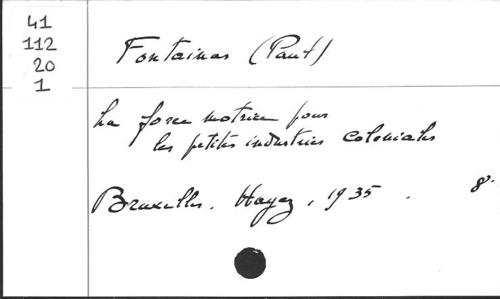 41
112
20
1
Fontainas (Paul)
La force motrice pour
les petites industries coloniales
Bruxelles. Hayez, 1935. 8°.